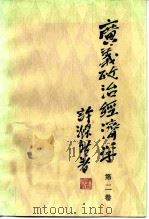 廣義政治經濟學
第二卷
許滌新著